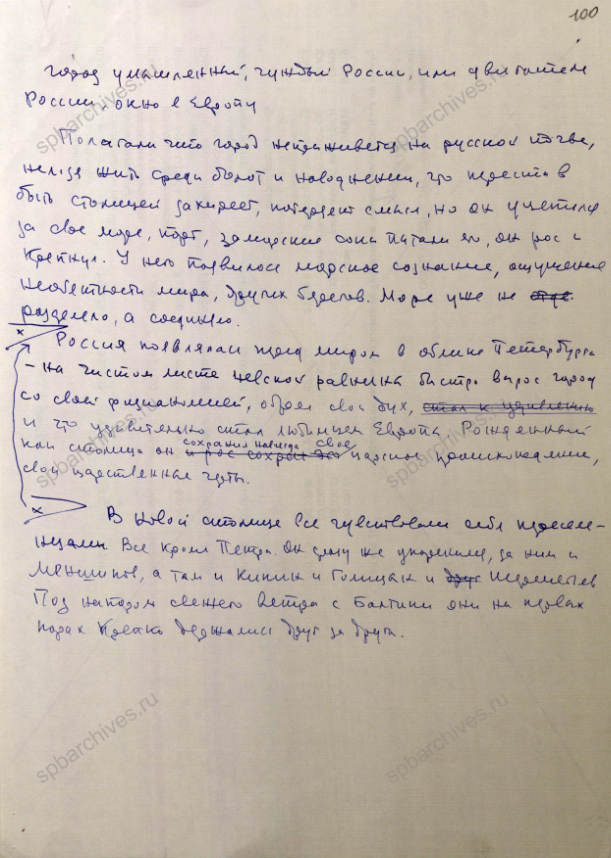 100
город умышленный, чуждый России, или двигатель
России, окно в Европу
Полагали что город не приживется на русской почве,
нельзя жить среди болот и наводнений, что перестав
быть столицей захиреет, потеряет смысл, но он уцепился
за свое море, порт, заморские соки питали его, он рос и
крепнул. У него появилось морское сознание, ощущение
необъятности мира, других берегов. Море уже не
разделяло, а соединяло.
х Россия появлялась перед миром в облике Петербурга
– на чистом листе невской равнины быстро вырос город
со своей физиономией, обрел свой дух, стал к удивлению
и что удивительно стал любимцем Европы Рожденный
сохранил навсегда свое
как столица он и рос сохраняя царское происхождение,
свои царственные черты.
х В новой столице все чувствовали себя переселе-
нцами Все кроме Петра. Он сразу же укоренился, за ним и
Меншиков, а там и Кикин и Голицын и Шереметьев
Под напором свежего ветра с Балтики они на первых
порах крепко держались друг за друга.
spbarchives.ru
spbarchives.ru
spbarchives.ru
spbarchives.ru
spbarchives.ru
spbarchives.ru